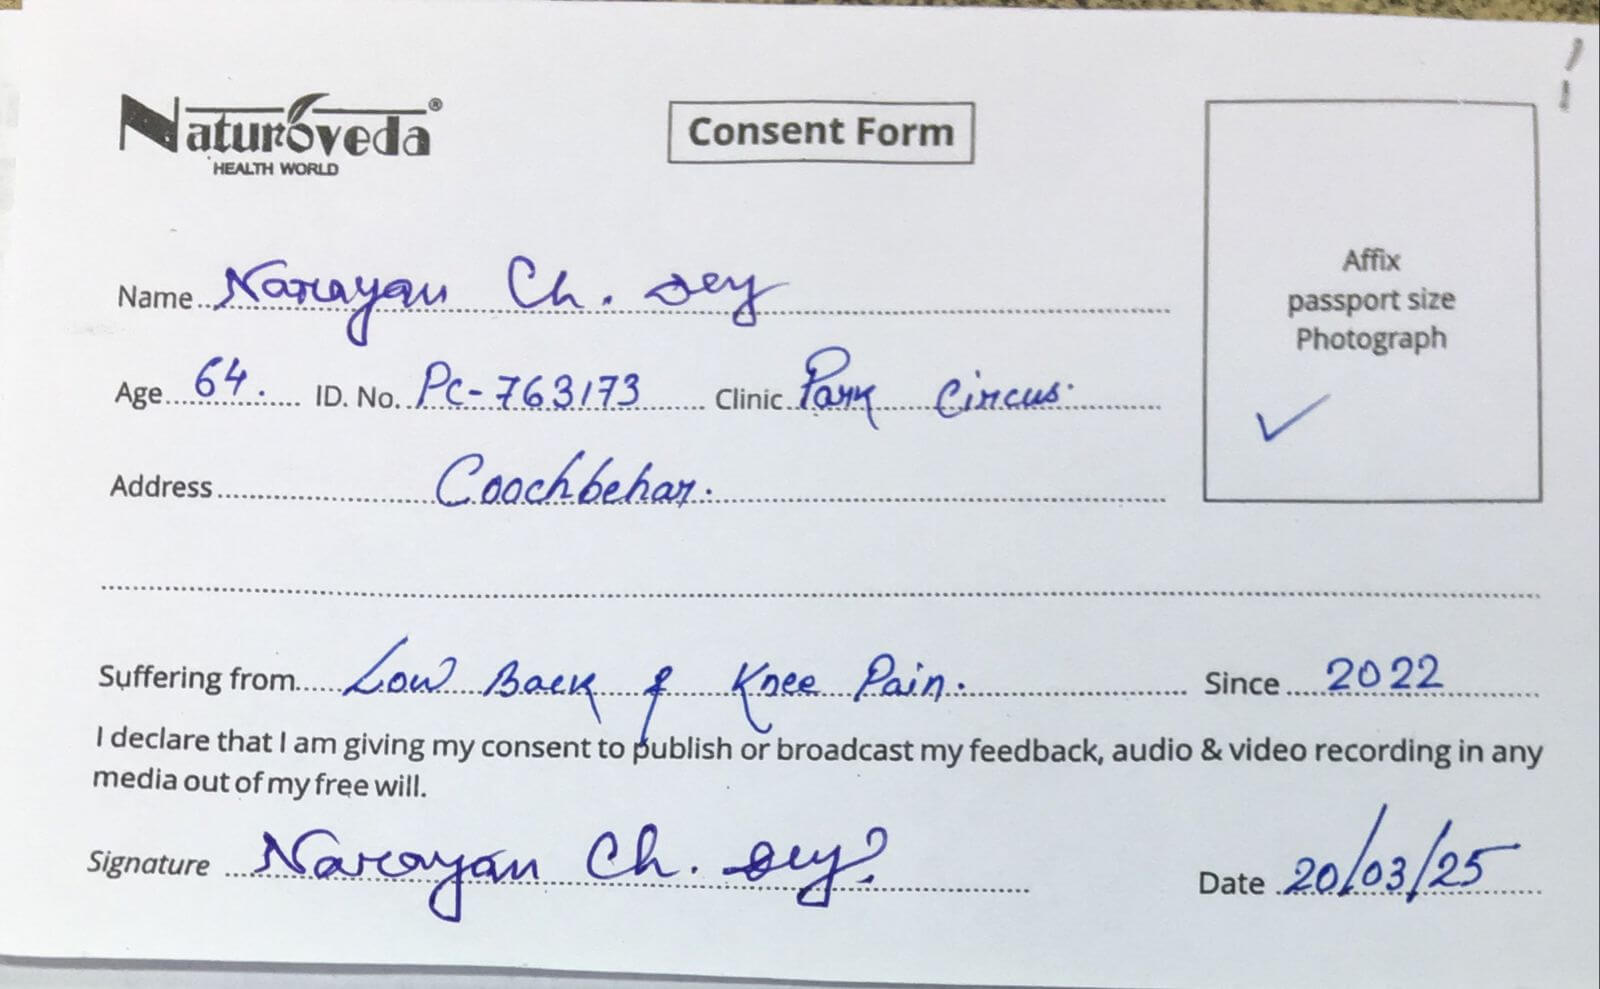 Naturoveda®
HEALTH WORLD
Consent Form
Affix
passport size
Photograph
Name Narayan Ch. Dey
Age 64. ID. No. PC-763173 Clinic Park Circus.
Address Coochbehar.
Suffering from Low Back & Knee Pain. Since 2022
I declare that I am giving my consent to publish or broadcast my feedback, audio & video recording in any
media out of my free will.
Signature Narayan Ch. Dey
Date 20/03/25